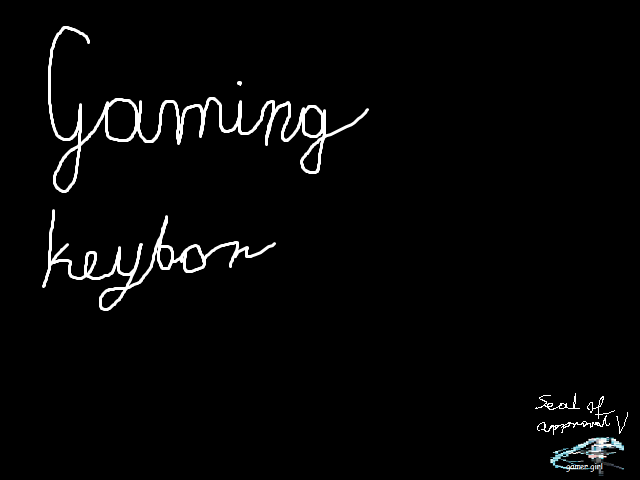 Gaming
keybor
Seal of
approval V
gamer girl